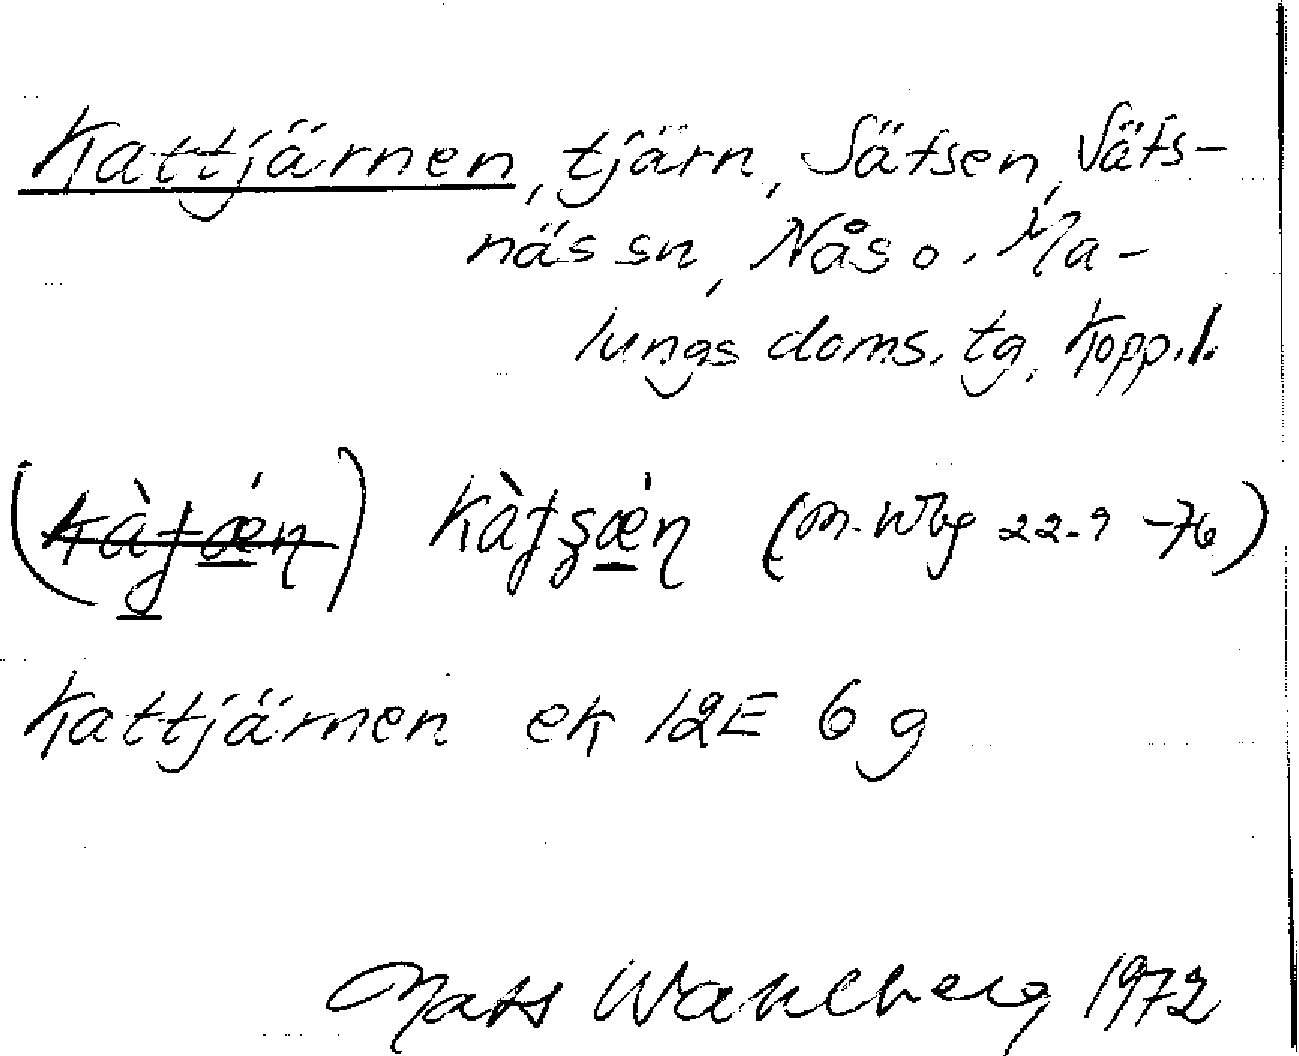 Kattjärnen, tjärn, Sätsen, Säfs-
näs sn, Nås o. Ma-
lungs doms. tg, Kopp.l.
(M. Wbg 22-9 -76)
Kattjärnen ek 12E 6 g
Mats Wahlberg 1972